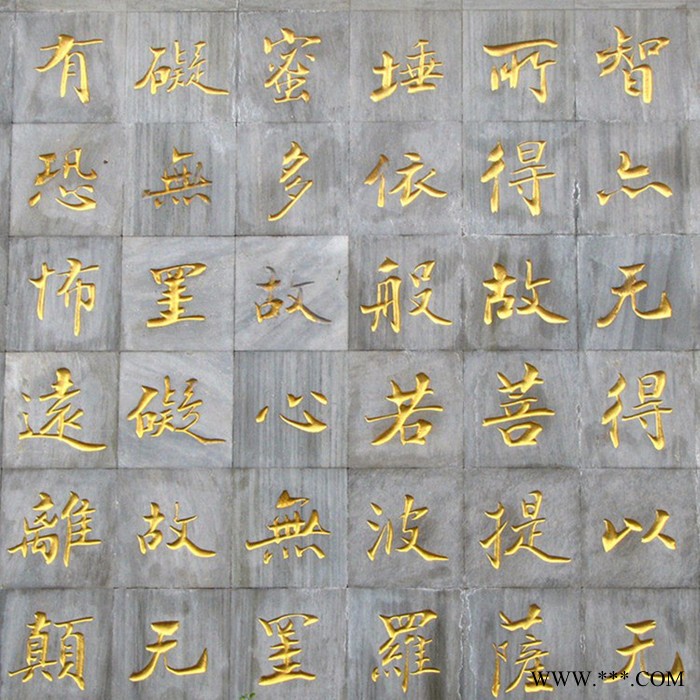 智亦无得以无
所得故菩提薩
埵依般若波羅
蜜多故心無罣
礙無罣礙故无
有恐怖遠離顛
WWW.***.COM